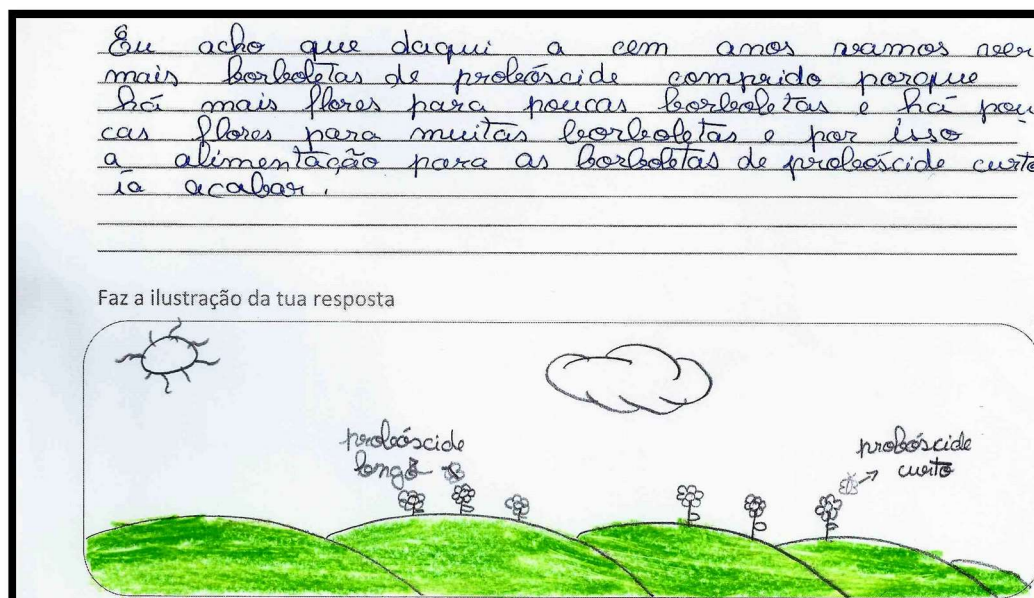 Eu acho que daqui a cem anos vamos ver
mais borboletas de probóscide comprido porque
há mais flores para poucas borboletas e há pou
cas flores para muitas borboletas e por isso
a alimentação para as borboletas de probóscide curto
ia acabar.
Faz a ilustração da tua resposta
probóscide
longo
probóscide
curto